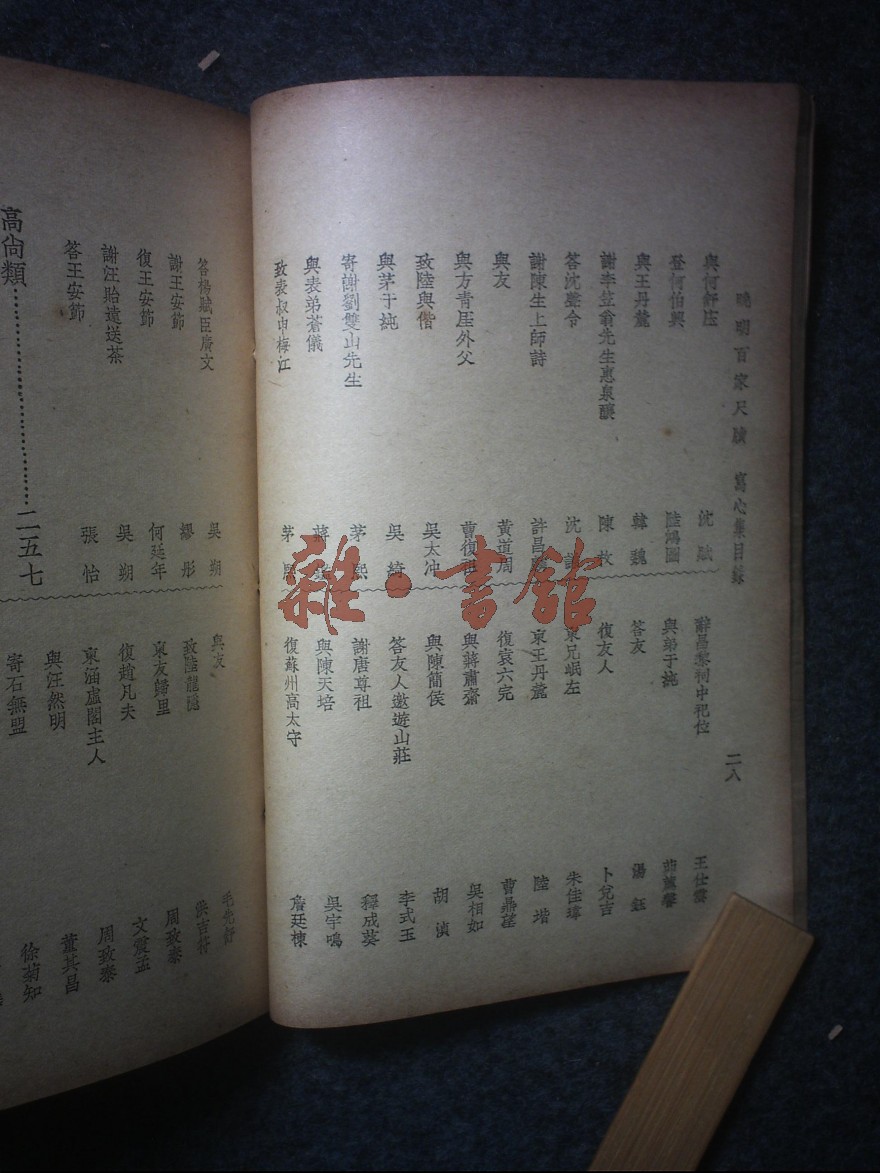 晚明百家尺牘 寫心集目錄
二八
與何舒㢈 沈賦
登何伯興 陸鴻圖
與王丹麓 韓魏
謝李笠翁先生惠泉釀 陳枚
答沈鄰令 沈
謝陳生上師詩 許昌
與友 黃道周
與方青厓外父 曹復祖
致陸與偕 吳太冲
與茅于純 吳綺
寄謝劉雙山先生 茅熙
與表弟蒼儀 蔣
致表叔申梅江 茅熙
辭昌黎祠中祀位 王仕雲
與弟于純 茹蕙馨
答友 湯鈺
復友人 卜兌吉
柬兄岷左 朱佳瑋
柬王丹麓 陸堦
復袁六完 曹鼎望
與蔣肅齋 吳相如
與陳簡侯 胡濱
答友人邀遊山莊 李式玉
謝唐尊祖 釋成葵
與陳天培 吳宇鳴
復蘇州高太守 詹廷棟
雜·書館
答楊賦臣廣文 吳朔
謝王安節 繆彤
復王安節 何廷年
謝汪貽遠送茶 吳朔
答王安節 張怡
高尚類……二五七
與友 毛先舒
致陸龍隱 洪吉符
柬友歸里 周致泰
復趙凡夫 文震孟
柬涵虛閣主人 周致泰
與汪然明 董其昌
寄石無盟 徐菊知